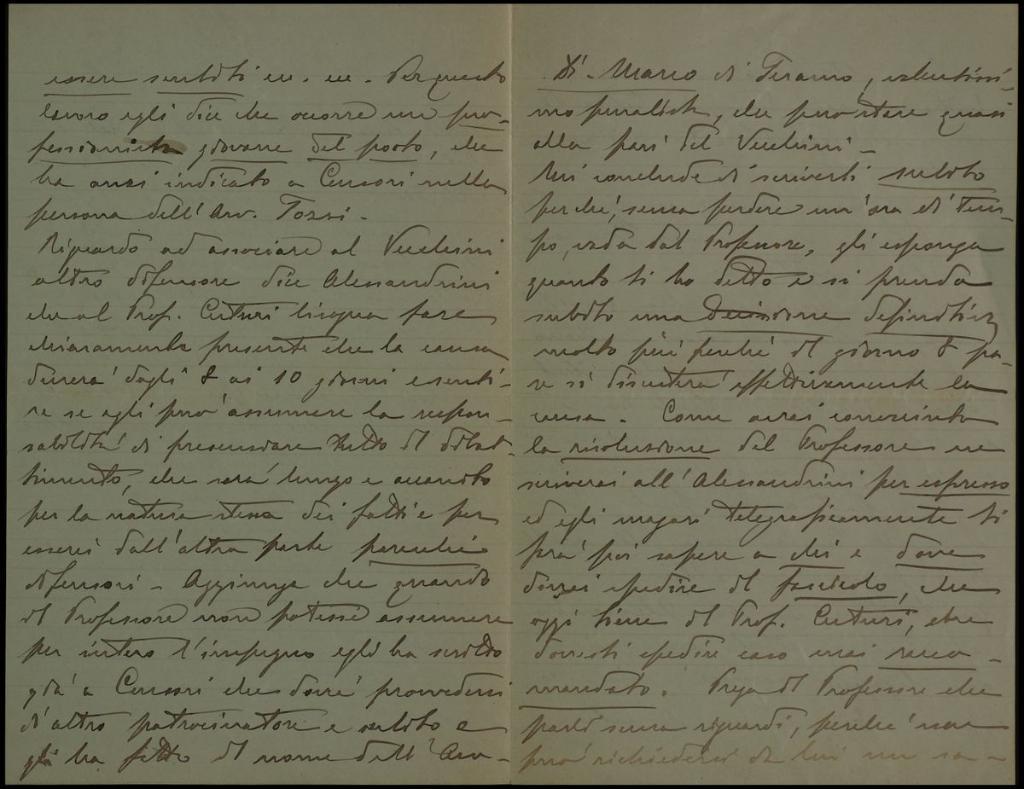 essere sentiti ecc. ecc. Per questo
lavoro egli dice che occorre un pro-
fessionista giovane del posto, che
ha anzi indicato a Censori nella
persona dell'Avv. Tozzi.
Riguardo ad associare al Vecchini
altro difensore dice Alessandrini
che al Prof. Cuturi bisogna fare
chiaramente presente che la causa
durerà dagli 8 ai 10 giorni e senti-
re se egli può assumere la respon-
sabilità di presenziare tutto il dibat-
timento, che sarà lungo e accanito
per la natura stessa dei fatti e per
esserci dall'altra parte parecchi
difensori. Aggiunge che quando
il Professore non potesse assumere
per intero l'impegno egli ha scritto
già a Censori che dovrà provvedersi
di altro patrocinatore e subito e
già ha fatto il nome dell'Avv.
Di Marco di Teramo, valentissi-
mo penalista, che può stare quasi
alla pari del Vecchini.
Mi conclude di scriverti subito
perché, senza perdere un'ora di tem-
po, vada dal Professore, gli esponga
quanto ti ho detto e si prenda
subito una decisione definitiva
molto più perché il giorno 8 pa-
re si discuterà effettivamente la
causa. Come avrai conosciuto
la risoluzione del Professore ne
scriverai all'Alessandrini per espresso
ed egli magari telegraficamente ti
farà poi sapere a chi e dove
dovrai spedire il fascicolo, che
oggi tiene il Prof. Cuturi, e che
dovresti spedire caso mai racco-
mandato. Prega il Professore che
parli senza riguardi, perché non
può richiedersi da lui un sa-